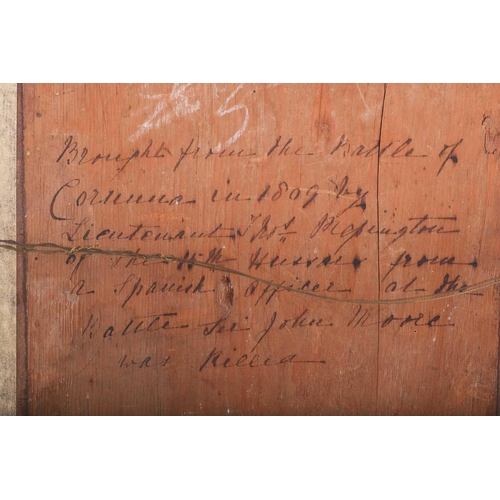 Brought from the Battle of
Corunna in 1809 by
Lieutenant Thos
of the 15th Hussars from
a Spanish officer at the
Battle Sir John Moore
was Killed